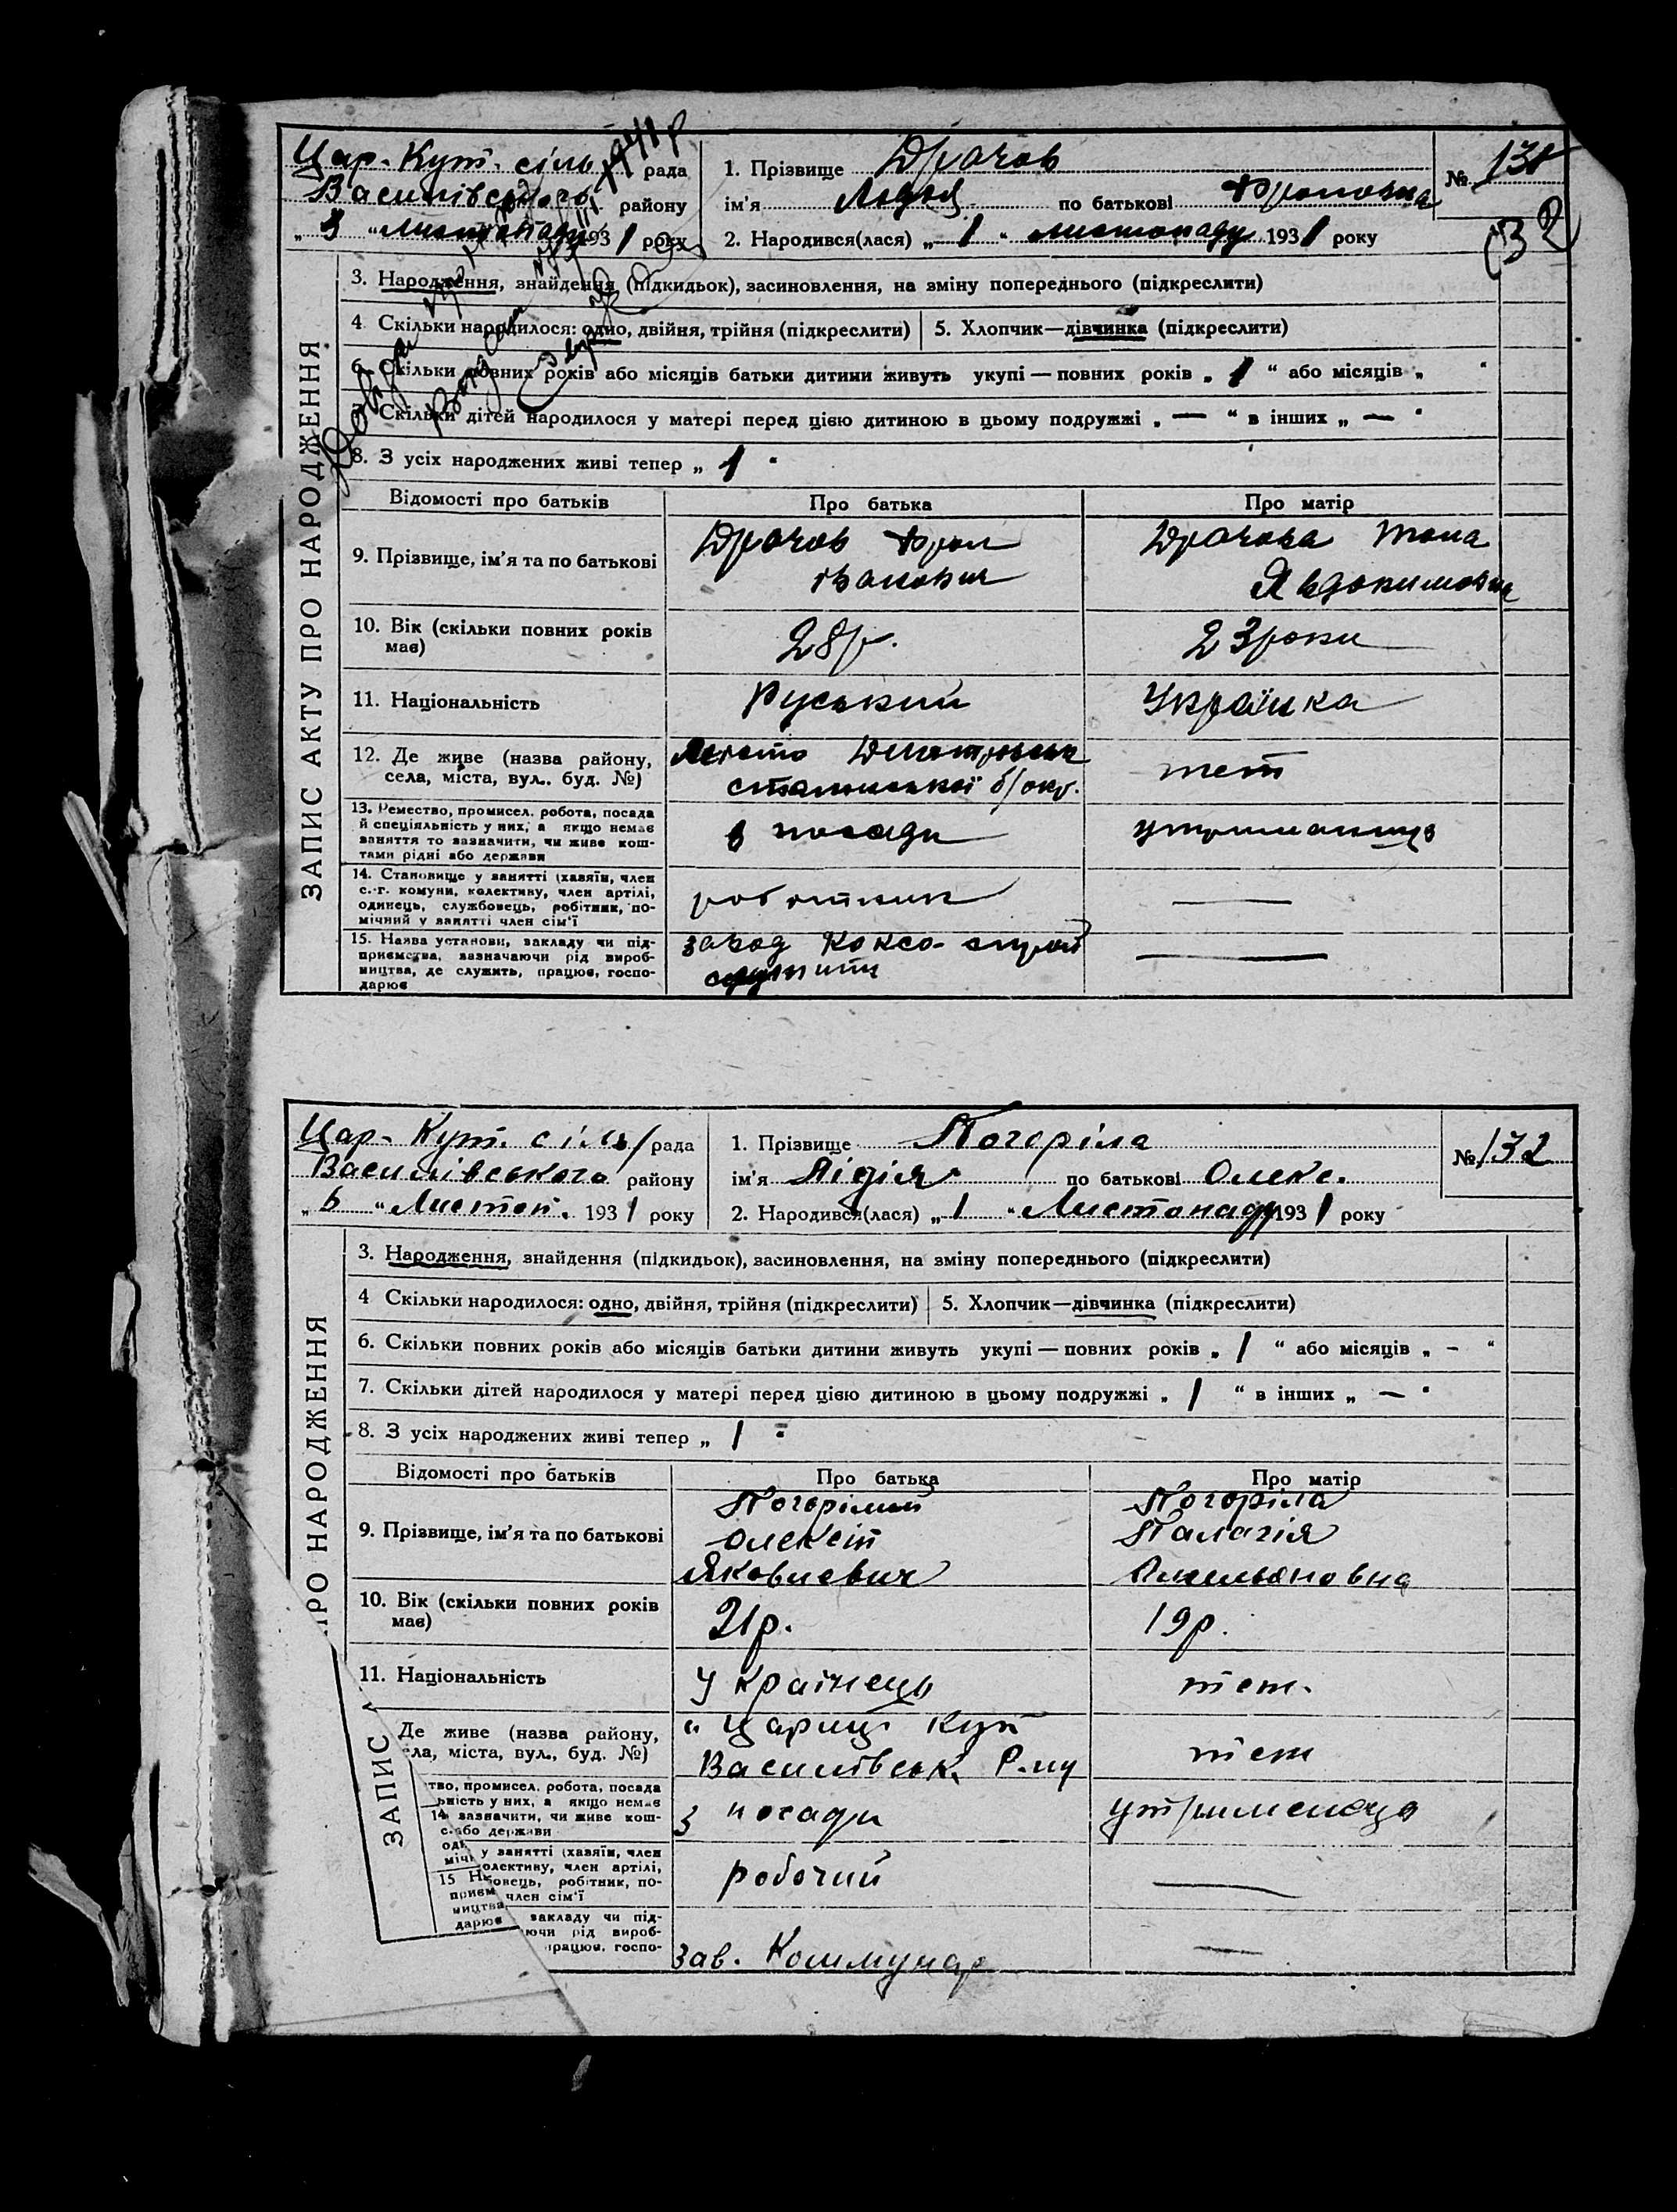 Цар-Кут. сіль рада
Василівського району
"3" Листопаду 1931 року
1. Прізвище Драчов
ім'я Лидия по батькові Фроловна
2. Народився(лася) „1" листопаду 1931 року
№ 131
132
ЗАПИС АКТУ ПРО НАРОДЖЕННЯ
3. Народження, знайдення (підкидьок), засиновлення, на зміну попереднього (підкреслити)
4. Скільки народилося: одно, двійня, трійня (підкреслити)
5. Хлопчик—дівчинка (підкреслити)
6. Скільки повних років або місяців батьки дитини живуть укупі — повних років „1" або місяців „ "
7. Скільки дітей народилося у матері перед цією дитиною в цьому подружжі „—" в інших „—"
8. З усіх народжених живі тепер „1"
Відомості про батьків
Про батька
Про матір
9. Прізвище, ім'я та по батькові
Драчов Фрол
Іванович
Драчова
Явдокимовна
10. Вік (скільки повних років має)
28р.
23 роки
11. Національність
Руський
Українка
12. Де живе (назва району,
села, міста, вул.. буд. №)
Место
сталинської б/окр.
теж
13. Ремество, промисел, робота, посада
й спеціяльність у них, а якщо немає
заняття то зазначити, чи живе кош-
тами рідні або держави
з посади
утриманиця
14. Становище у занятті (хазяїн, член
с.-г. комуни, колективу, член артілі,
одинець, службовець, робітник, по-
мічний у занятті член сім'ї
роботник
—
15. Назва установи, закладу чи під-
приємства, зазначаючи рід вироб-
ництва, де служить, працює, госпо-
дарює
завод Коксо-строй
—
Цар-Кут. сіль/рада
Василівського району
„6" Листоп. 1931 року
1. Прізвище Погоріла
ім'я Лідія по батькові Олекс.
2. Народився(лася) „1" Листопаду 1931 року
№ 132
ПРО НАРОДЖЕННЯ
ЗАПИС
3. Народження, знайдення (підкидьок), засиновлення, на зміну попереднього (підкреслити)
4 Скільки народилося: одно, двійня, трійня (підкреслити)
5. Хлопчик—дівчинка (підкреслити)
6. Скільки повних років або місяців батьки дитини живуть укупі — повних років „1" або місяців „-"
7. Скільки дітей народилося у матері перед цією дитиною в цьому подружжі „1" в інших „—"
8. З усіх народжених живі тепер „1"
Відомості про батьків
Про батька
Про матір
9. Прізвище, ім'я та по батькові
Погорілий
Олексій
Яковлевич
Погоріла
Палагія
Омельяновна
10. Вік (скільки повних років
має)
21р.
19р.
11. Національність
Українець
теж.
Де живе (назва району,
села, міста, вул., буд. №)
Цариці Кут
Василівськ. Р-ну
теж
тво, промисел, робота, посада
ьність у них, а якщо немає
зазначити, чи живе кош-
або держави
з посади
утриманеця
14.
у занятті (хазяїн, член
олективу, член артілі,
овець, робітник, по-
член сім'ї
робочий
—
15 На
приєм
ництва
дарює
закладу чи під-
ючи рід вироб-
працює, госпо-
зав. Коммунар
—